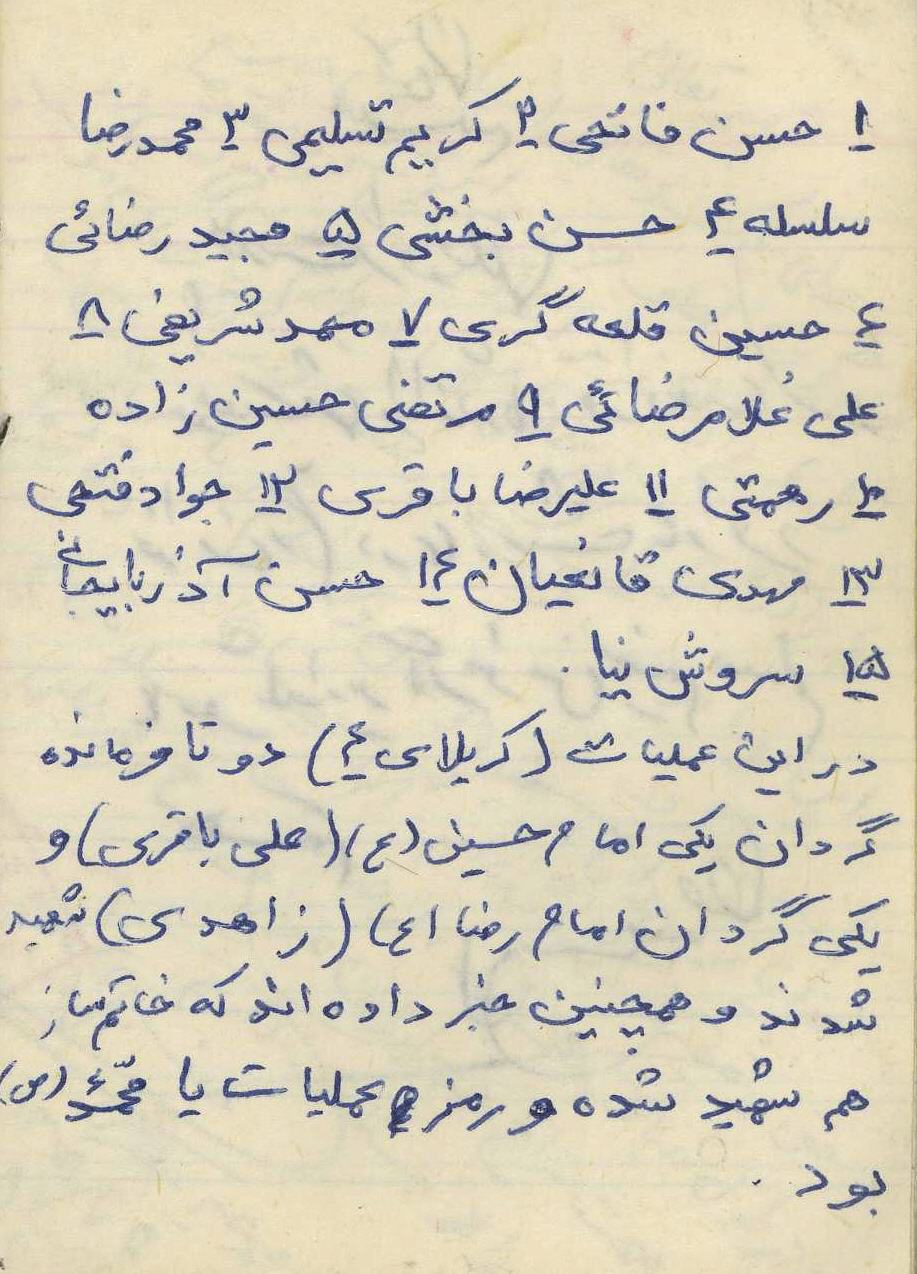 ۱ حسن فاتحی ۲ کریم تسلیمی ۳ محمدرضا
سلسله ۴ حسن بخشی ۵ مجید رضائی
۶ حسین قلعه گری ۷ محمد شریفی ۸
علی غلامرضائی ۹ مرتضی حسین زاده
۱۰ رحمتی ۱۱ علیرضا باقری ۱۲ جواد فتحی
۱۳ مهدی قانعیان ۱۴ حسن آذربایجانی
۱۵ سروش نیا .
در این عملیات (کربلای ۴) دو تا فرمانده
گردان یکی امام حسین (ع) (علی باقری) و
یکی گردان امام رضا (ع) (زاهدی) شهید
شدند و همچنین خبر داده اند که خاتم ساز
هم شهید شده و رمز عملیات یا محمد (ص)
بود .